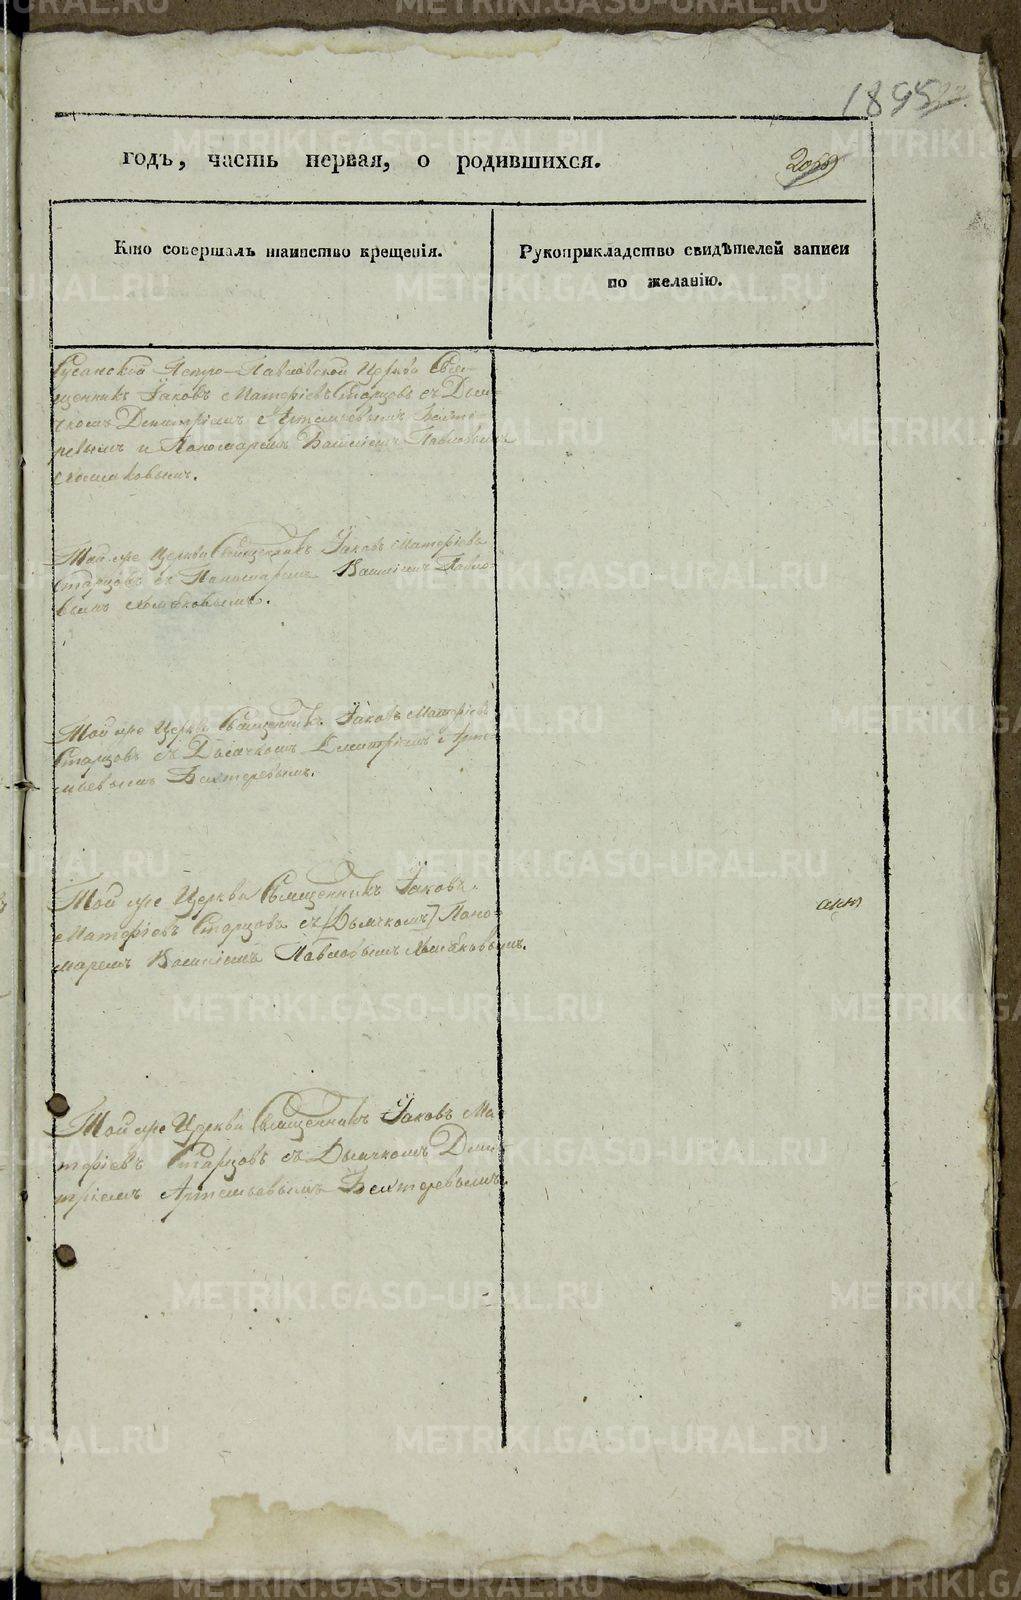 1895
годъ, часть первая, о родившихся.
Кто совершалъ таинство крещенія.
Рукоприкладство свидѣтелей записи
по желанію.
Петро-Павловской Церкви Свя-
щенникъ Іаковъ Матѳіевъ Старцовъ съ Дья-
чкомъ Димитріемъ Артемьевымъ Бехте-
ревымъ и Пономаремъ Василіемъ Павловымъ
Хомяковымъ.
Той же Церкви Священникъ Іаковъ Матѳіевъ
Старцовъ съ Пономаремъ Василіемъ Павло-
вымъ Хомяковымъ.
Той же Церкви Священникъ Іаковъ Матѳіевъ
Старцовъ съ Дьячкомъ Димитріемъ Арте-
мьевымъ Бехтеревымъ.
Той же Церкви Священникъ Іаковъ
Матѳіевъ Старцовъ съ [Дьячкомъ] Поно-
маремъ Василіемъ Павловымъ Хомяковымъ.
Той же Церкви Священникъ Іаковъ Ма-
тѳіевъ Старцовъ съ Дьячкомъ Дми-
тріемъ Артемьевымъ Бехтеревымъ.
METRIKI.GASO-URAL.RU